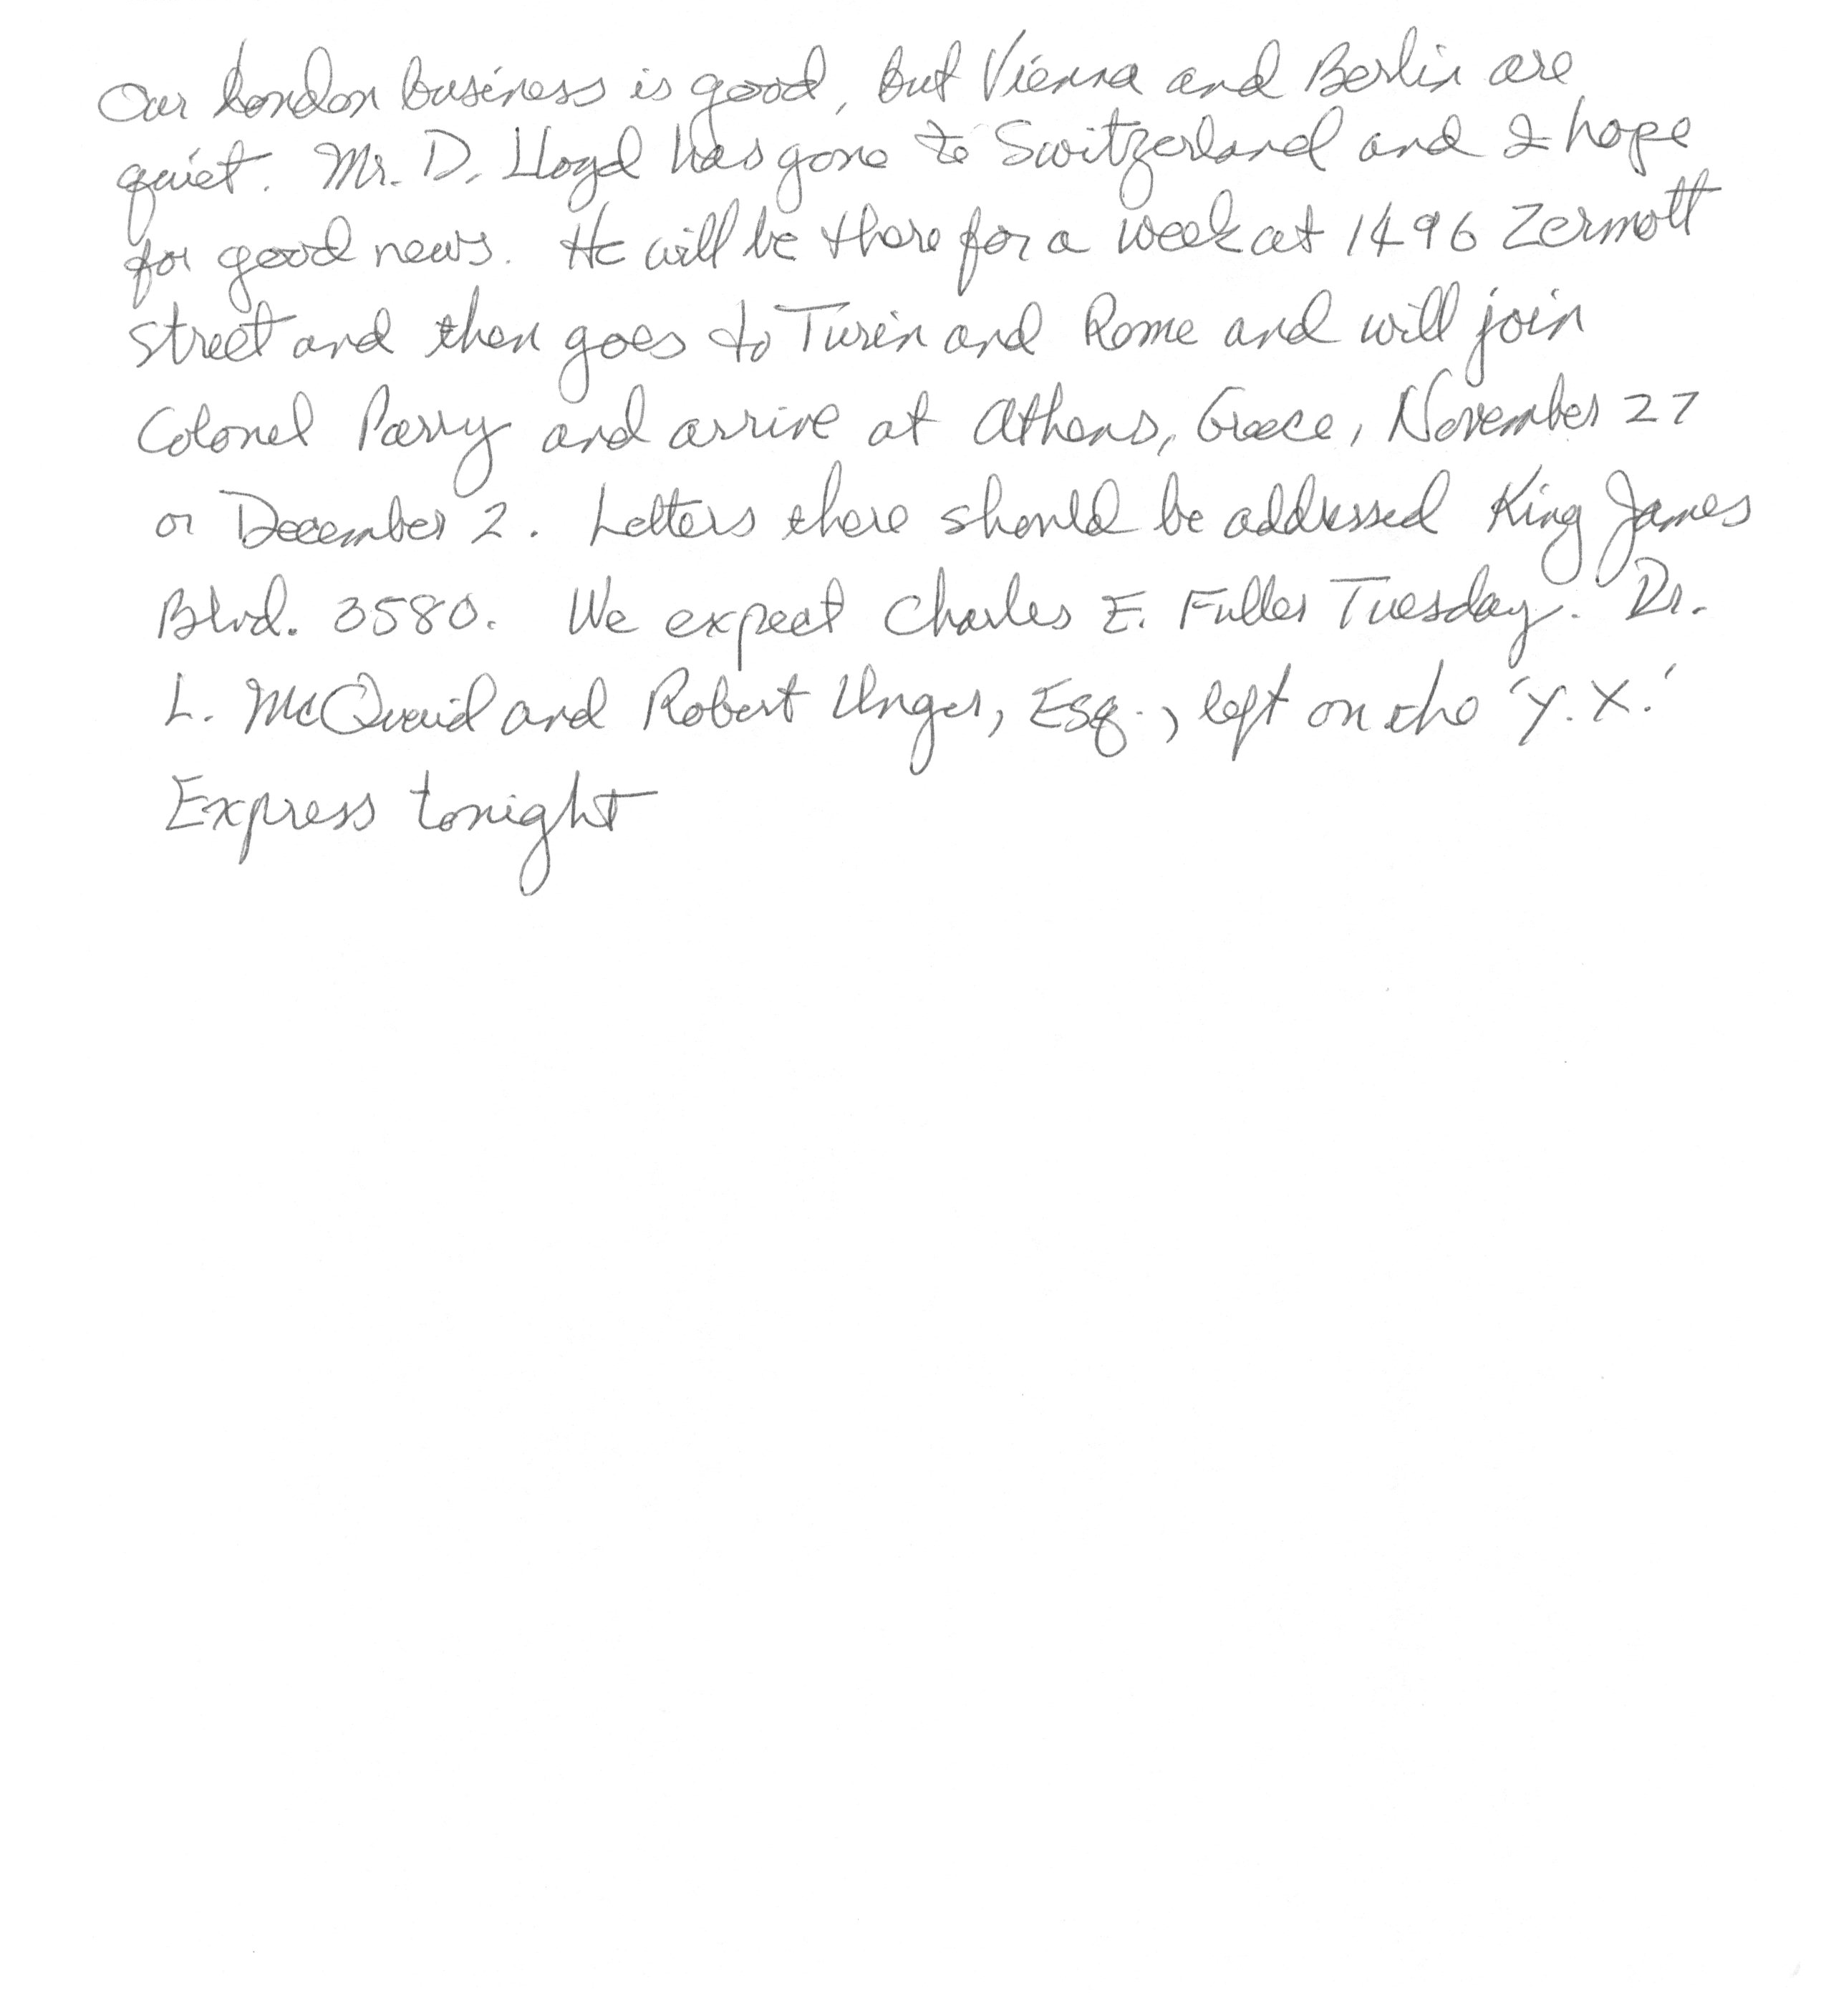 Our London business is good, but Vienna and Berlin are
quiet. Mr. D. Lloyd has gone to Switzerland and I hope
for good news. He will be there for a week at 1496 Zermott
street and then goes to Turin and Rome and will join
Colonel Parry and arrive at Athens, Greece, November 27
or December 2. Letters there should be addressed King James
Blvd. 3580. We expect Charles E. Fuller Tuesday. Dr.
L. McQuaid and Robert Unger, Esq., left on the 'Y.X.'
Express tonight